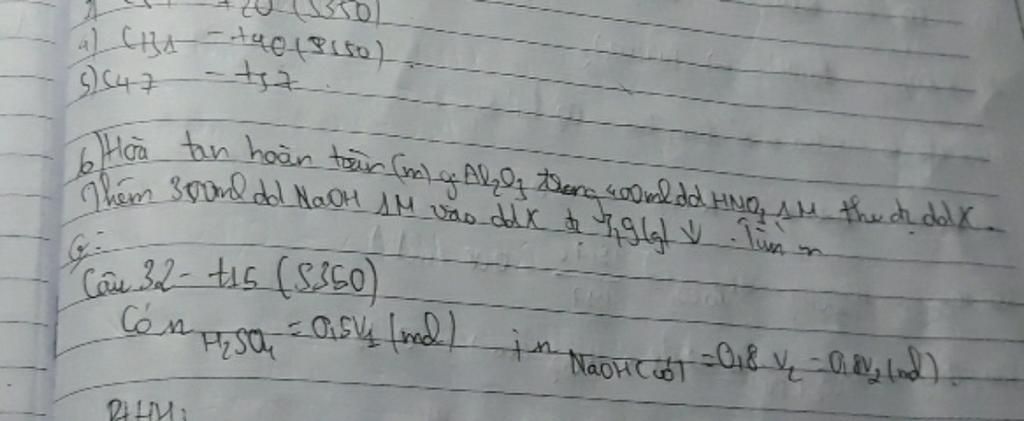 +20 (S350)
a) CH1 = +40 (S350)
5) C47 - t57
6) Hòa tan hoàn toàn (m) g Al2O3 trong 400ml dd HNO3 1M thu đc ddX.
Thêm 300ml dd NaOH 1M vào ddX đc 7,9(g) ↓. Tìm m
G:
Câu 32 - t15 (S350)
Có n H2SO4 = 0,5V1 (mol) ; n NaOH(bđ) = 0,8 V2 = 0,8V2 (mol).
PTHH: